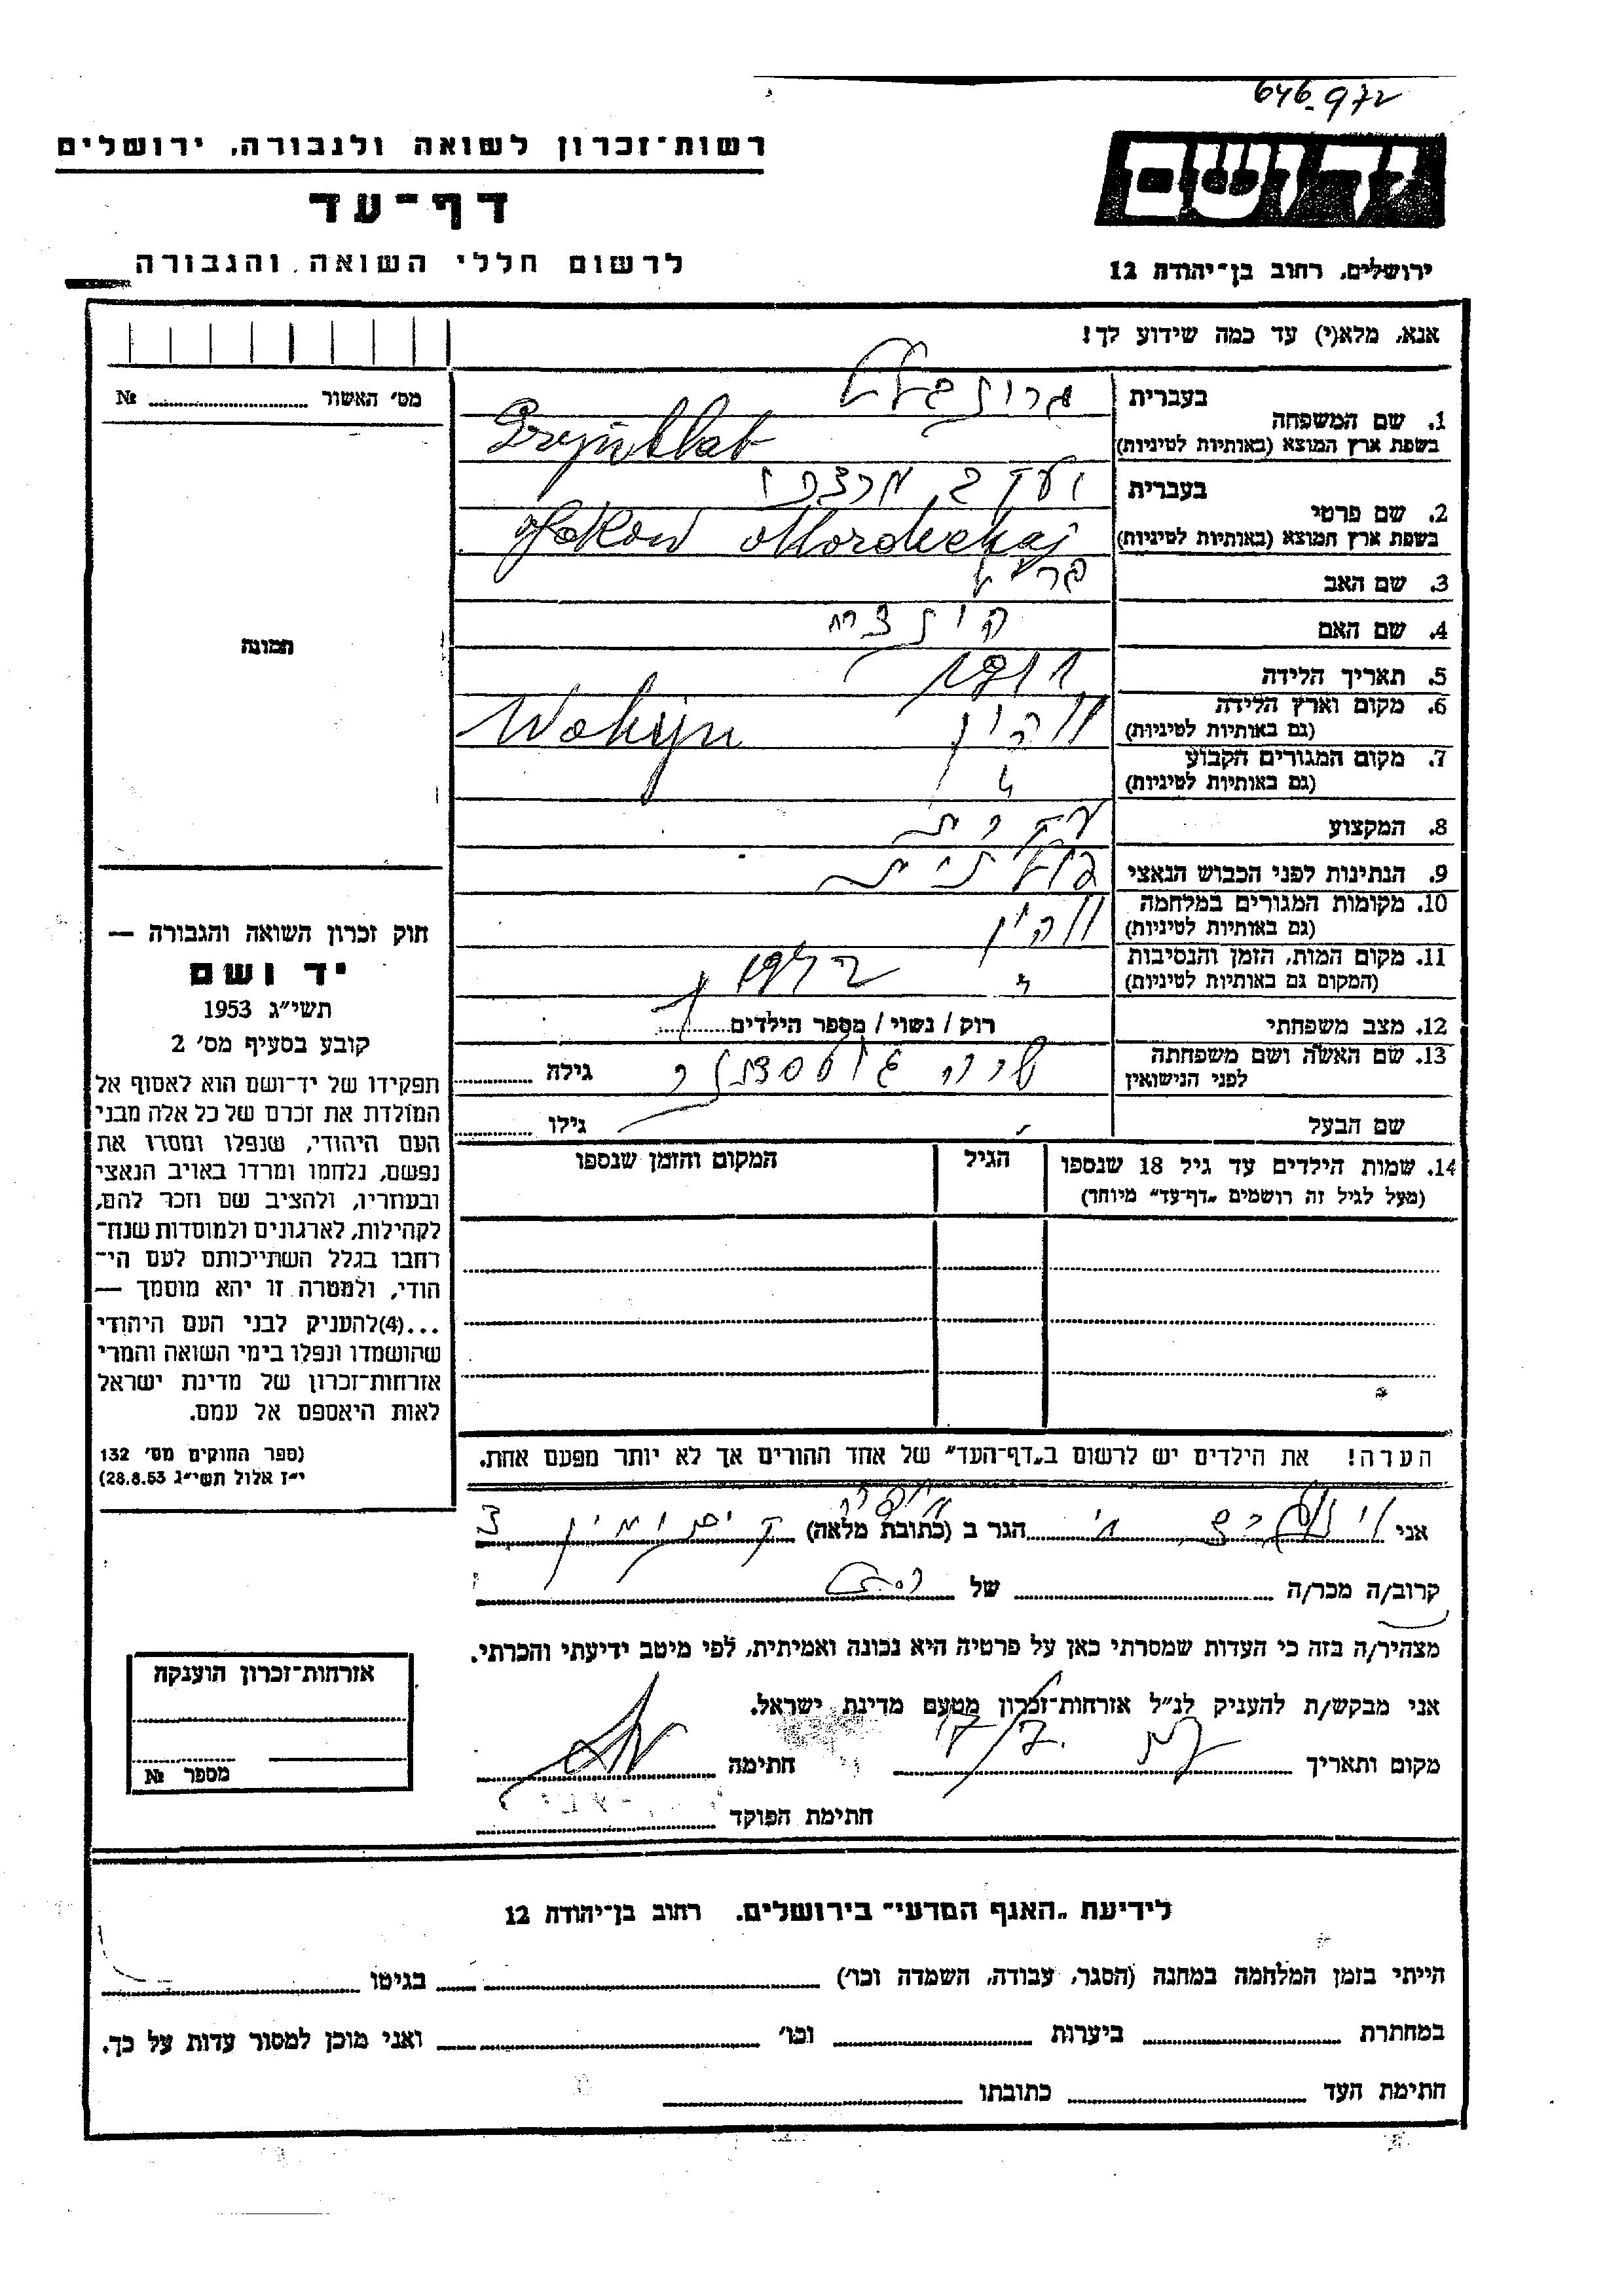 646-972
רשות־זכרון לשואה ולגבורה, ירושלים
ידושם
דף־עד
לרשום חללי השואה והגבורה
ירושלים, רחוב בן־יהודה 12
אנא, מלא(י) עד כמה שידוע לך!
מס׳ האשור № 
1. שם המשפחה
בעברית גרינבלט
בשפת ארץ המוצא (באותיות לטיניות) Grynblat
2. שם פרטי
בעברית יעקב מרדכי
בשפת ארץ המוצא (באותיות לטיניות) Jakow Mordechaj
3. שם האב
4. שם האם
5. תאריך הלידה 1911
6. מקום וארץ הלידה
(גם באותיות לטיניות) ווהין Wohyn
7. מקום המגורים הקבוע
(גם באותיות לטיניות) "
8. המקצוע
9. הנתינות לפני הכבוש הנאצי פולנית
10. מקומות המגורים במלחמה
(גם באותיות לטיניות) ווהין
11. מקום המות, הזמן והנסיבות
(המקום גם באותיות לטיניות) " 1942
12. מצב משפחתי רוק / נשוי / מספר הילדים
13. שם האשה ושם משפחתה
לפני הנישואין שרה גילה
שם הבעל גילו
14. שמות הילדים עד גיל 18 שנספו
(מעל לגיל זה רושמים „דף־עד” מיוחד)
הגיל
המקום והזמן שנספו
תמונה
חוק זכרון השואה והגבורה —
יד ושם
תשי״ג 1953
קובע בסעיף מס׳ 2
תפקידו של יד־ושם הוא לאסוף אל
המולדת את זכרם של כל אלה מבני
העם היהודי, שנפלו ומסרו את
נפשם, נלחמו ומרדו באויב הנאצי
ובעוזריו, ולהציב שם וזכר להם,
לקהילות, לארגונים ולמוסדות שנח־
רחבו בגלל השתייכותם לעם הי־
הודי, ולמטרה זו יהא מוסמך —
...(4)להעניק לבני העם היהודי
שהושמדו ונפלו בימי השואה והמרי
אזרחות־זכרון של מדינת ישראל
לאות היאספם אל עמם.
(ספר החוקים מס׳ 132
י״ז אלול תשי״ג 28.8.53)
הערה! את הילדים יש לרשום ב„דף־העד” של אחד ההורים אך לא יותר מפעם אחת.
אני הגר ב (כתובת מלאה)
קרוב/ה מכר/ה של
מצהיר/ה בזה כי העדות שמסרתי כאן על פרטיה היא נכונה ואמיתית, לפי מיטב ידיעתי והכרתי.
אני מבקש/ת להעניק לנ״ל אזרחות־זכרון מטעם מדינת ישראל.
מקום ותאריך חתימה
חתימת הפוקד
אזרחות־זכרון הוענקה
מספר №
לידיעת „האגף המדעי” בירושלים. רחוב בן־יהודה 12
הייתי בזמן המלחמה במחנה (הסגר, עבודה, השמדה וכו׳) בגיטו
במחתרת ביערות וכו׳ ואני מוכן למסור עדות על כך.
חתימת העד כתובתו